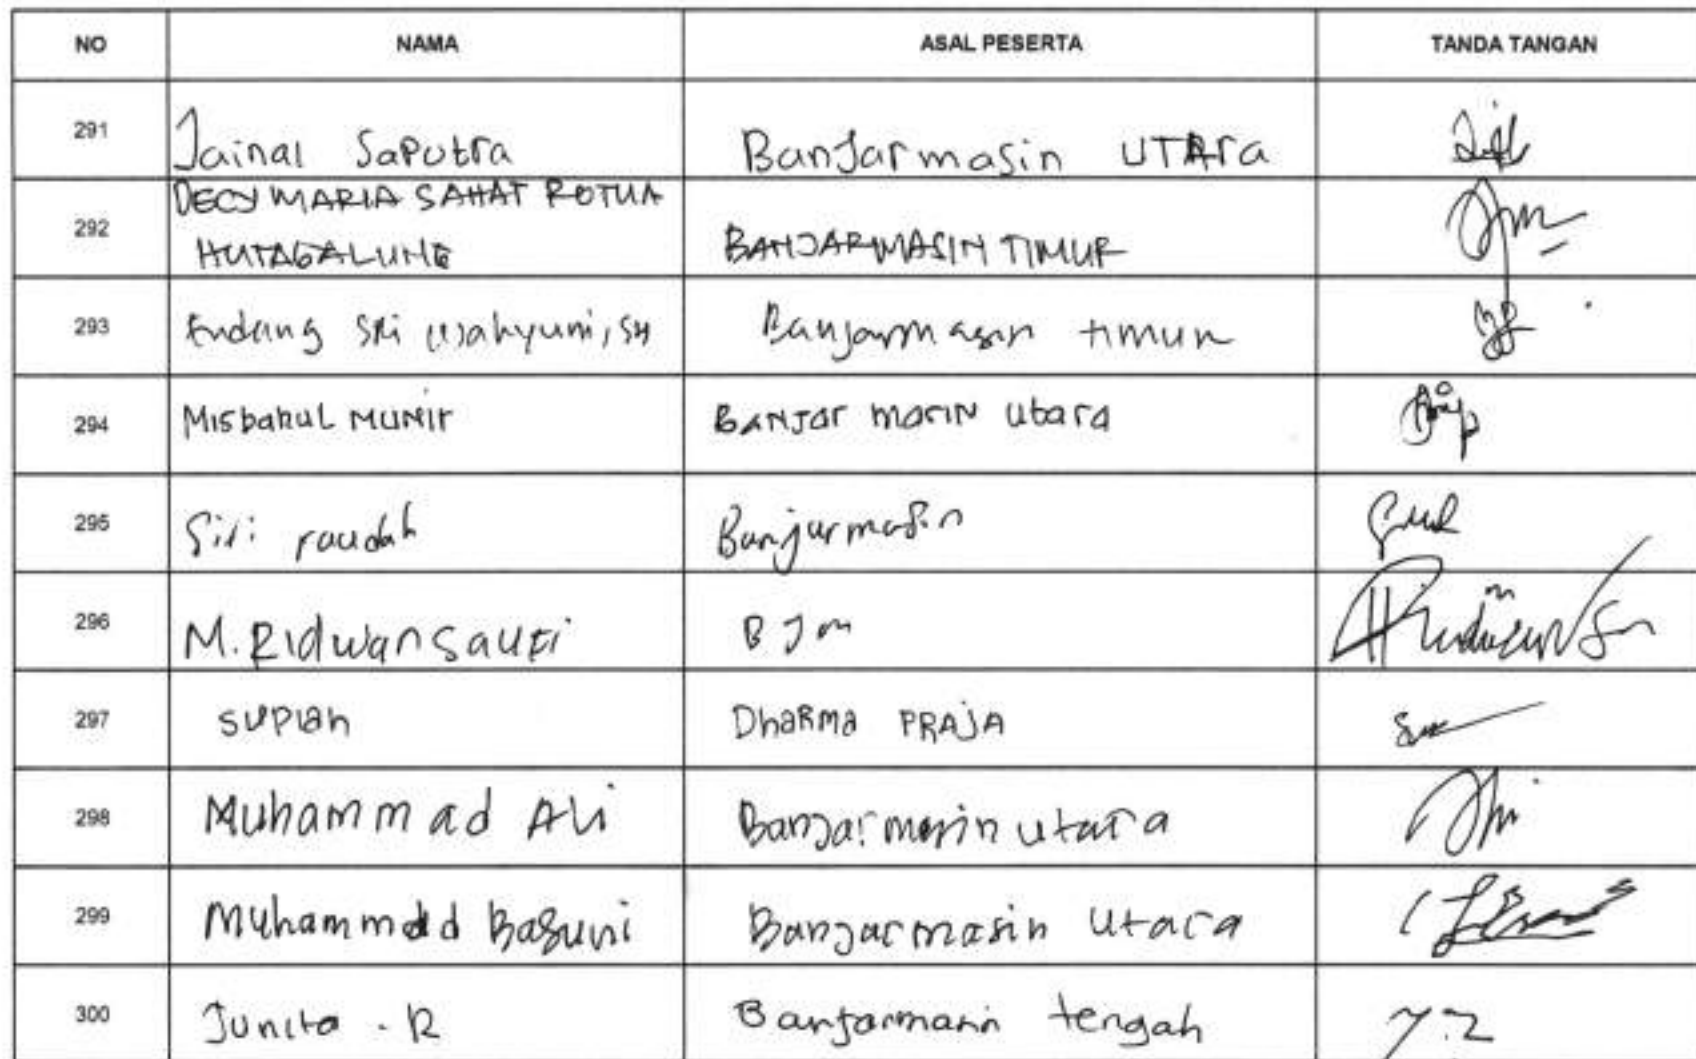 NO NAMA ASAL PESERTA TANDA TANGAN
291 Jainal Saputra Banjarmasin UTARA
292 DECY MARIA SAHAT ROTUA
HUTAGALUNG BANJARMASIN TIMUR
293 Endang Sri Wahyuni, SH Banjarmasin timur
294 Misbahul MUNir BANJar masin utara
295 Siti raudah Banjarmasin
296 M. Ridwan Sauqi BJm
297 supiah DhaRMa PRAJA
298 Muhammad Ali Banjarmasin utara
299 Muhammad Basuni Banjarmasin Utara
300 Junita . R Banjarmasin tengah